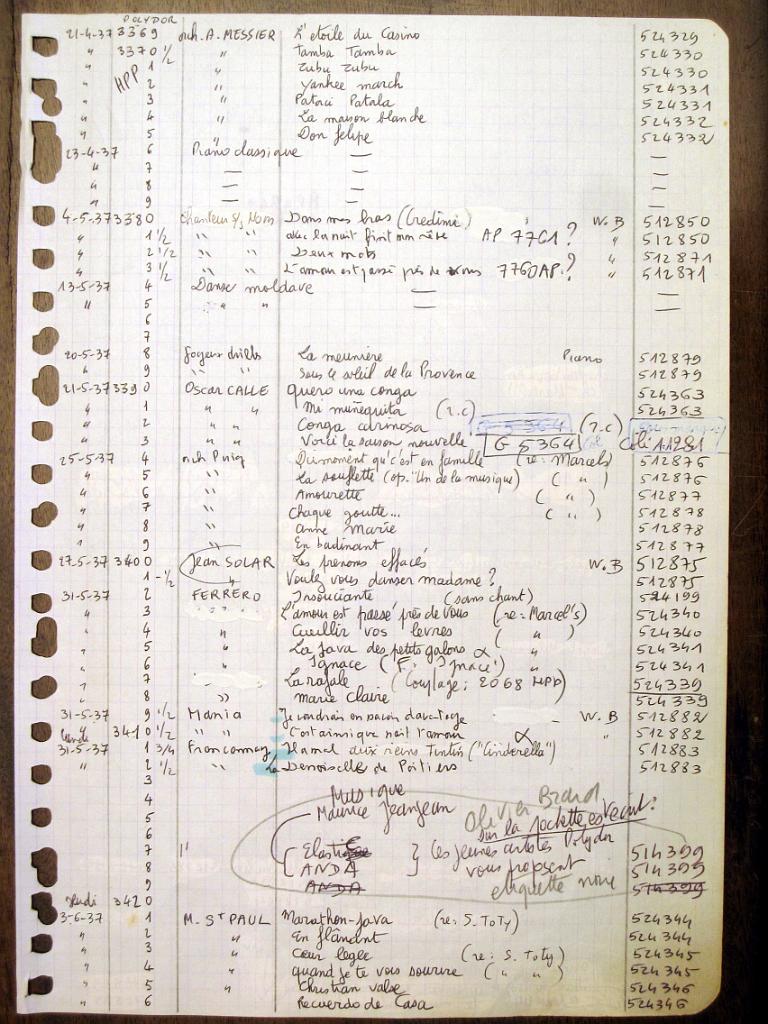 POLYDOR
21-4-37 3369 orch. A. MESSIER L'etoile du Casino 524329
" 3370 1/2 " Tamba Tamba 524330
" HPP 1 " Zubu Zubu 524330
" 2 " Yankee march 524331
" 3 " Patati Patala 524331
" 4 " La maison blanche 524332
" 5 " Don felipe 524332
23-4-37 6 Piano classique — —
" 7 — — —
" 8 — — —
" 9 — — —
4-5-37 3380 Chanteur s/s Nom Dans mes bras (Credimi) W.B 512850
" 1 1/2 " " avec la nuit finit mon rêve AP 7761? " 512850
" 2 1/2 " " Deux mots " 512871
" 3 1/2 " " L'amour est passé près de vous 7760AP? " 512871
13-5-37 4 Danse moldave — —
" 5 " " — —
6
7
20-5-37 8 Joyeux drills La meunière Piano 512879
" 9 " " Sous le soleil de la Provence 512879
21-5-37 3390 Oscar CALLE quero una conga 524363
" 1 " " Mi muñequita (r.c) 524363
" 2 " " Conga carinosa G 5364 (r.c)
" 3 " " Voici la saison nouvelle G 5364 Col 11281
25-5-37 4 orch Puig Du moment qu'c'est en famille (re: Marcels) 512876
" 5 " La souflette (op. "Un de la musique) ( " ) 512876
" 6 " Amourette ( " ) 512877
" 7 " Chaque goutte... ( " ) 512878
" 8 " Anne Marie 512878
" 9 " En badinant 512877
27-5-37 3400 Jean SOLAR Les prenoms effacés W.B 512875
1-1/2 " Voulez vous danser madame? 512875
31-5-37 2 FERRERO Insouciante (sans chant) 524199
" 3 L'amour est passé près de vous (re: Marcel's) 524340
" 4 " Cueillir vos levres ( " ) 524340
" 5 " La java des petits galons α " 524341
" 6 " Ignace (F. Ignace) " 524341
" 7 La rafale (Couplage: 2068 HPP) 524339
" 8 " Marie Claire 524339
31-5-37 9 1/2 Mania Je voudrais en savoir davantage W.B 512882
lundi 3410 1/2 " " C'est ainsi que nait l'amour α " 512882
31-5-37 1 3/4 Francommay Hamel aux reine Tintin ("Cinderella") 512883
" 2 1/2 La Demoiselle de Poitiers 512883
3
4 Musique
Maurice Jeanjean Olivier Brard
5 sur la pochette est écrit?
6
7 " Elastic } les jeunes artistes Polydor 514399
8 [ ANDA vous proposent 514399
9 ANDA etiquette noire 514399
jeudi 3420
3-6-37 1 M. St PAUL Marathon-Java (re: S. Toty) 524344
" 2 " En flânant 524344
" 3 " Cœur leger (re: S. Toty) 524345
" 4 " quand je te vois sourire ( " " ) 524345
" 5 " Christian valse 524346
" 6 Recuerdo de Casa 524346